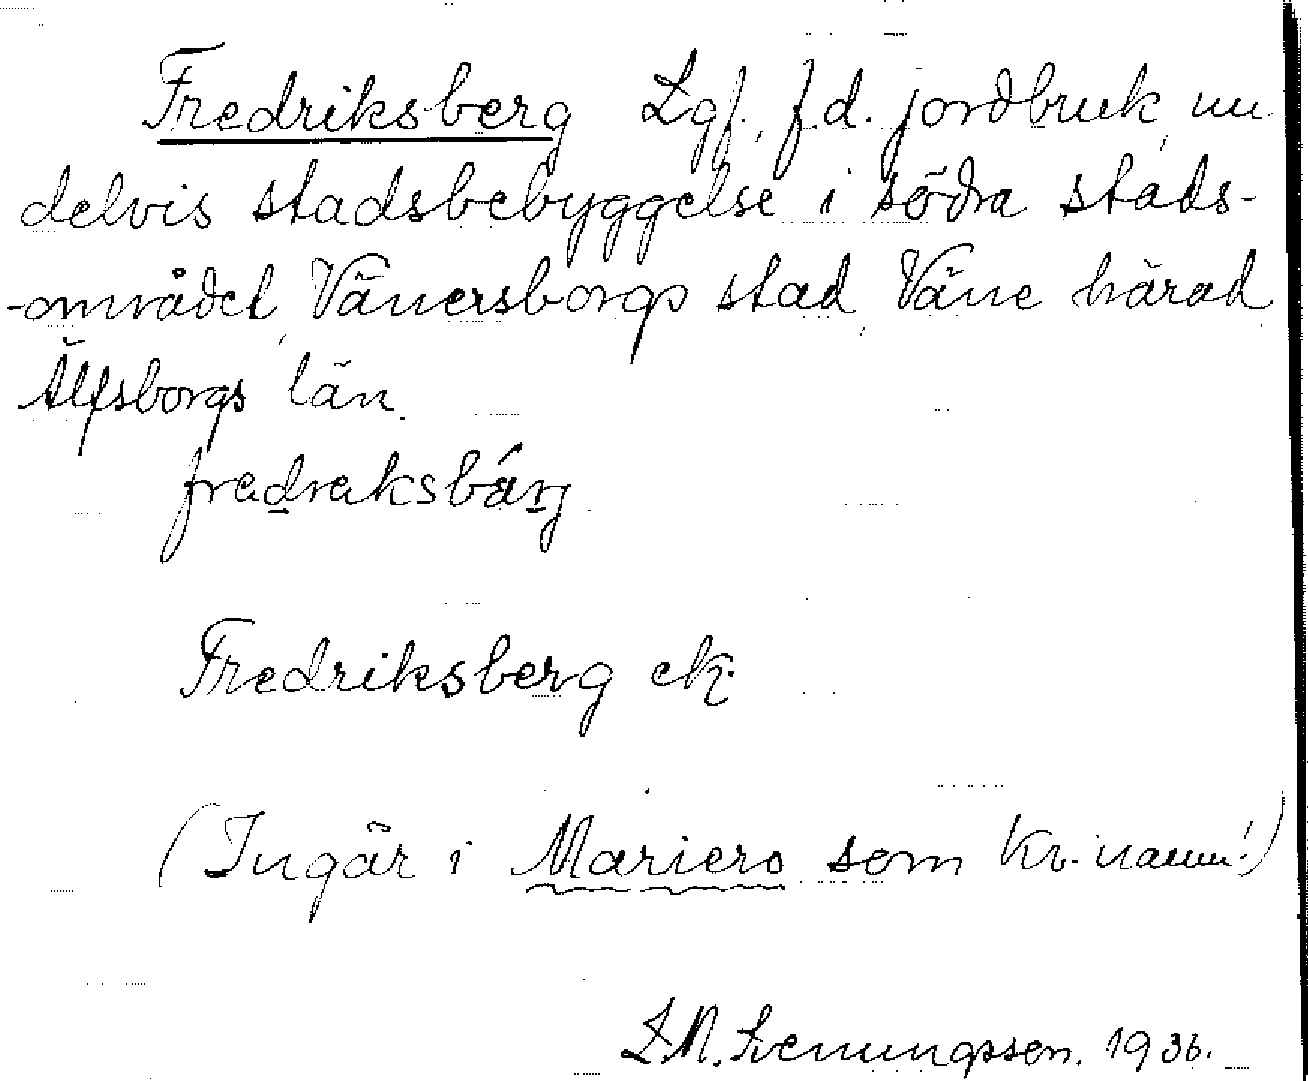 Fredriksberg Lgf., f.d. jordbruk, nu
delvis stadsbebyggelse i södra stads-
-området, Vänersborgs stad, Väne härad
Älfsborgs län.
fredreksbárj
Fredriksberg ek.
(Ingår i Mariero som kv.namn!)
L.M. Svenungsson. 1936.